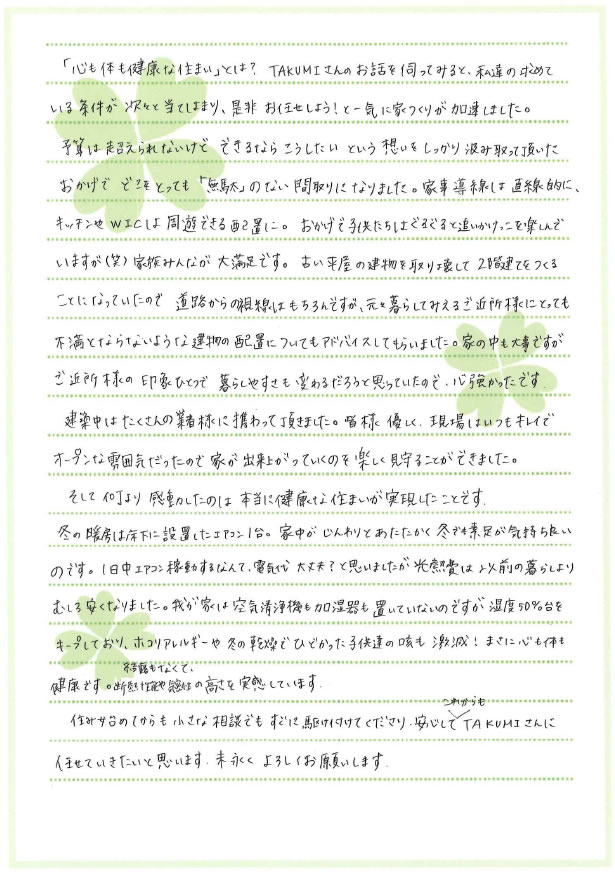 「心も体も健康な住まい」とは? TAKUMIさんのお話を伺ってみると、私達の求めて
いる条件が次々と当てはまり、是非お任せしよう!と一気に家づくりが加速しました。
予算は超えられないけどできるならこうしたいという想いをしっかり汲み取って頂いた
おかげでどこをとっても「無駄」のない間取りになりました。家事導線は直線的に、
キッチンやWICは周遊できる配置に。おかげで子供たちはぐるぐると追いかけっこを楽しんで
いますが(笑)家族みんなが大満足です。古い平屋の建物を取り壊して2階建てをつくる
ことになっていたので道路からの視線はもちろんですが、元々暮らしてみえるご近所様にとっても
不満とならないような建物の配置についてもアドバイスしてもらいました。家の中も大事ですが
ご近所様の印象ひとつで暮らしやすさも変わるだろうと思っていたので、心強かったです
建築中はたくさんの業者様に携わって頂きました。皆様優しく、現場はいつもキレイで
オープンな雰囲気だったので家が出来上がっていくのを楽しく見守ることができました。
そして何より感動したのは本当に健康な住まいが実現したことです。
冬の暖房は床下に設置したエアコン1台。家中がじんわりとあたたかく冬でも素足が気持ち良い
のです。1日中エアコン稼動するなんて、電気代大丈夫?と思いましたが光熱費は以前の暮らしより
むしろ安くなりました。我が家は空気清浄機も加湿器も置いていないのですが湿度50%台を
キープしており、ホコリアレルギーや冬の乾燥でひどかった子供達の咳も激減!まさに心も体も
結露もなくて、
健康です。断熱性能や気密性の高さを実感しています。
これからも
住み始めてからも小さな相談でもすぐに駆け付けてくださり、安心してTAKUMIさんに
任せていきたいと思います。末永くよろしくお願いします。